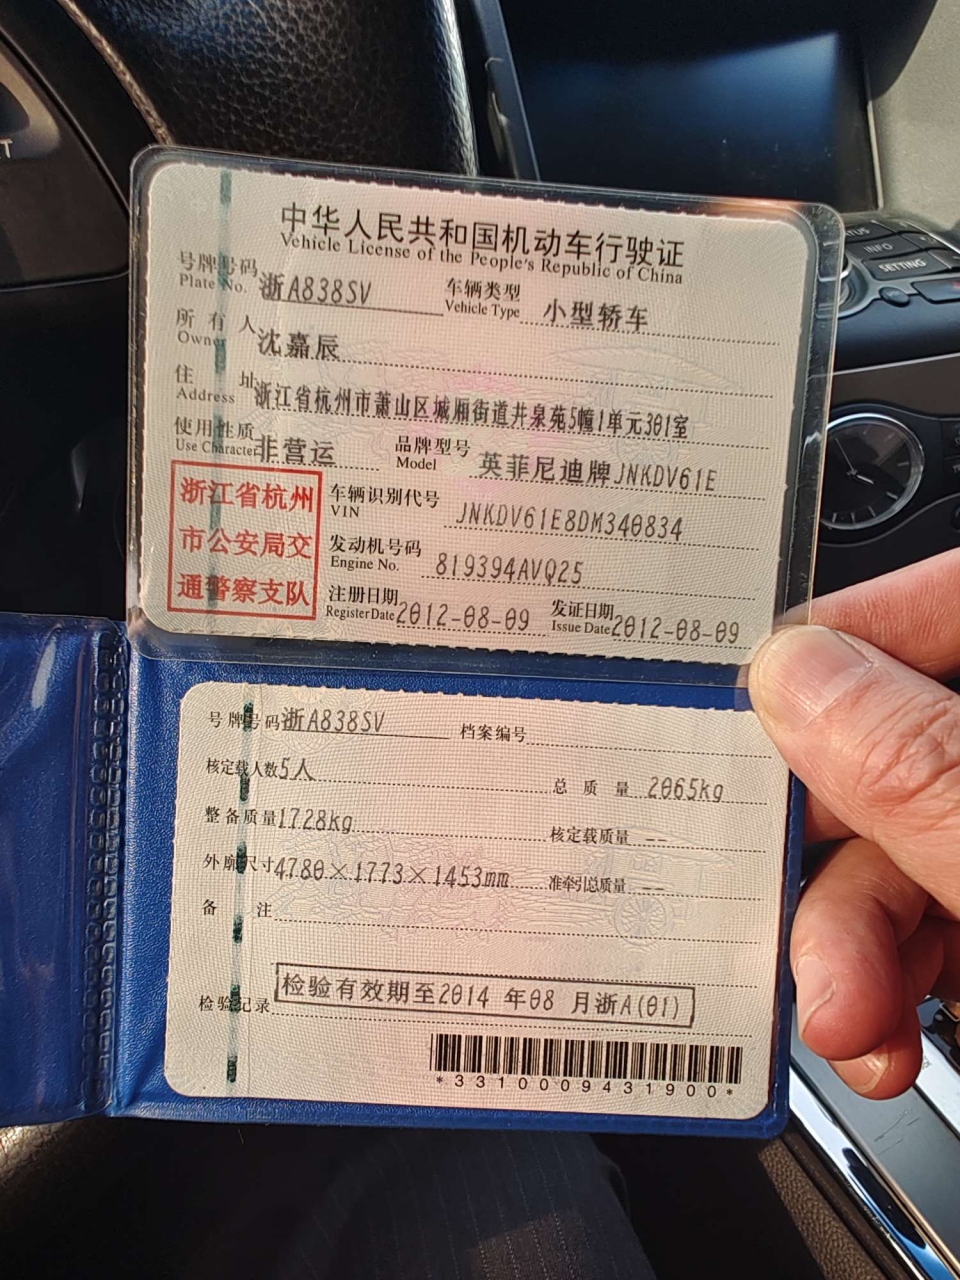 中华人民共和国机动车行驶证
Vehicle License of the People's Republic of China
号牌号码 浙A838SV 车辆类型 小型轿车
Plate No. Vehicle Type
所有人 沈嘉辰
Owner
住址 浙江省杭州市萧山区城厢街道井泉苑5幢1单元301室
Address
使用性质 非营运 品牌型号 英菲尼迪牌JNKDV61E
Use Character Model
浙江省杭州
市公安局交
通警察支队
车辆识别代号 JNKDV61E8DM340834
VIN
发动机号码 819394AVQ25
Engine No.
注册日期 2012-08-09 发证日期 2012-08-09
Register Date Issue Date
号牌号码 浙A838SV 档案编号
核定载人数 5人 总质量 2065kg
整备质量 1728kg 核定载质量 --
外廓尺寸 4780×1773×1453mm 准牵引总质量 --
备注
检验记录 检验有效期至2014 年08 月浙A(01)
*3310009431900*
INFO
SETTING